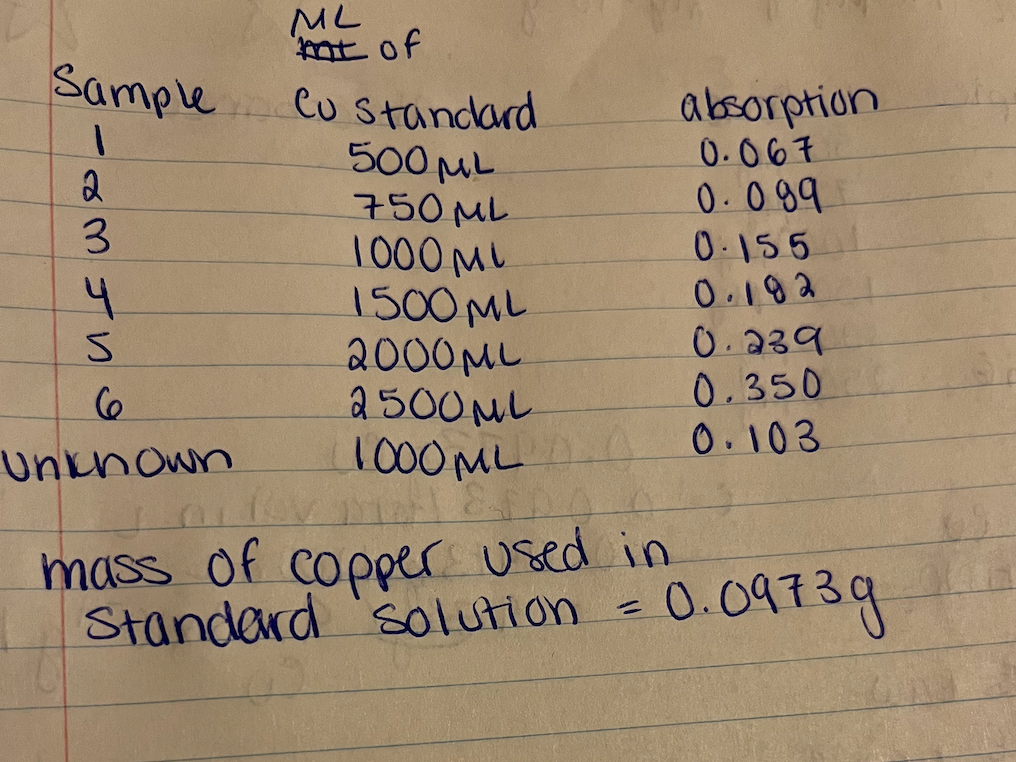 ML
mL of
Sample Cu Standard absorption
1 500ML 0.067
2 750ML 0.089
3 1000ML 0.155
4 1500ML 0.182
5 2000ML 0.239
6 2500ML 0.350
unknown 1000ML 0.103
mass of copper used in
Standard solution = 0.0973g